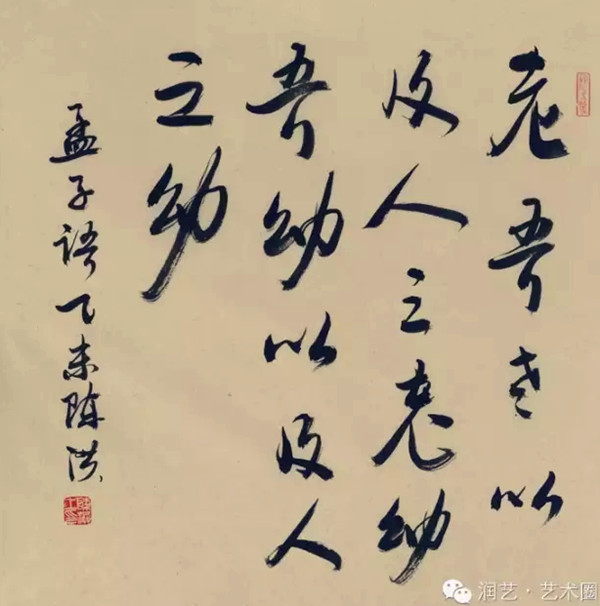 老吾老以
及人之老幼
吾幼以及人
之幼
孟子语乙未陈洪
润艺·艺术圈